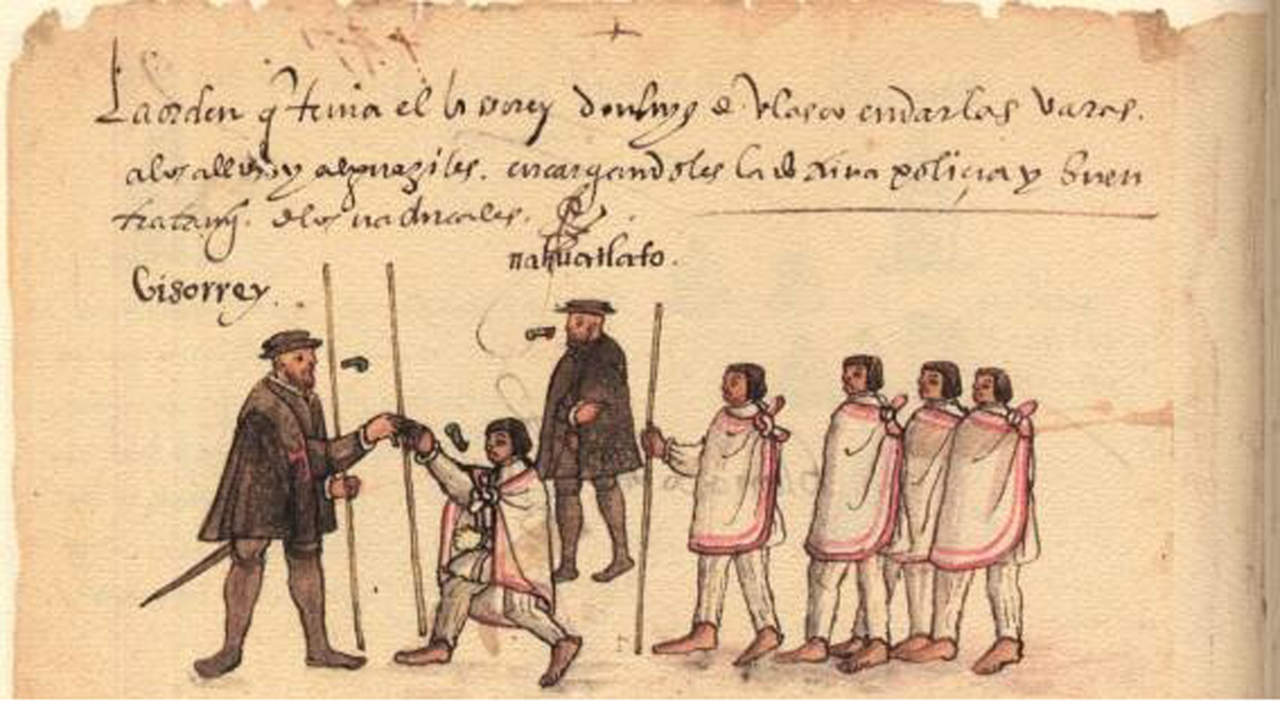 La orden q̃ tenia el bisorrey don luys de Velasco en dar las varas.
a los alldes y alguaziles. encargandoles la doctrina poliçia y buen
tratamj. de los nadurales.
nahuatlato.
bisorrey.